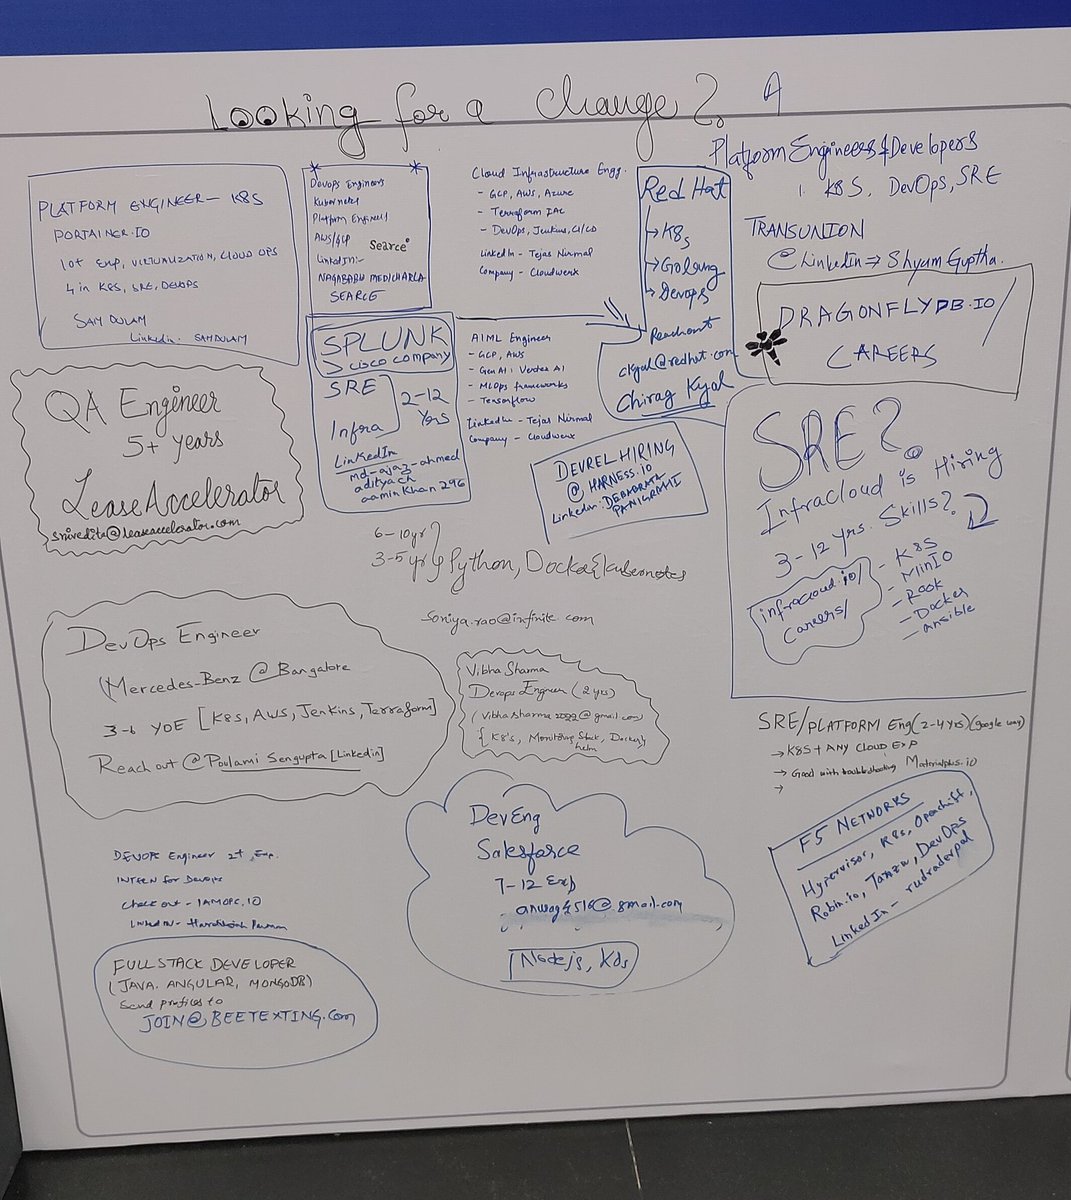 Looking for a change?
A
PLATFORM ENGINEER - K8S
PORTAINER.IO
IoT EXP, VIRTUALIZATION, CLOUD OPS
4 in K8S, SRE, DEVOPS
SAM DULAM
Linkedin: SAMDULAM
DevOps Engineers
Kubernetes
Platform Engineers
AWS/GCP
Searce
LinkedIn:-
NAGABABU MEDICHARLA
SEARCE
Cloud Infrastructure Engg.
- GCP, AWS, Azure
- Terraform IAC
- DevOps, Jenkins, CI/CD
LinkedIn - Tejas Nirmal
Company - Cloudwerx
Red Hat
→ K8s
→ Golang
→ Devops
Reachout
ckyal@redhat.com
Chirag Kyal
Platform Engineers & Developers
K8S, DevOps, SRE
TRANSUNION
@Linkedin ⇒ Shyam Guptha.
DRAGONFLYDB.IO/
CAREERS
QA Engineer
5+ years
LeaseAccelerator
snivedita@leaseaccelerator.com
SPLUNK
a cisco company
SRE
Infra
2-12
Yrs
LinkedIn
md-ajaz-ahmed
adityach
aaminkhan296
AIML Engineer
- GCP, AWS
- Gen AI: Vertex AI
- MLOps frameworks
- Tensorflow
LinkedIn - Tejas Nirmal
Company - Cloudwerx
DEVREL HIRING
@ HARNESS.IO
LinkedIn: DEBABRATA
PANIGRAHI
SRE?
Infracloud is Hiring
3-12 yrs. Skills?
- K8S
- MinIO
- Rook
- Docker
- ansible
infracloud.io/
careers/
6-10yr
3-5yr Python, Docker & kubernetes
soniya.rao@infinite.com
DevOps Engineer
Mercedes-Benz @ Bangalore
3-6 YOE [K8S, AWS, Jenkins, Terraform]
Reach out @Poulami Sengupta [Linkedin]
Vibha Sharma
Devops Engineer (2 yrs)
{ K8's, Monitoring Stack, Docker,
helm
SRE/PLATFORM Eng (2-4 yrs) (google way)
→ K8S + ANY CLOUD EXP
→ Good with troubleshooting Materialplus.io
→
F5 NETWORKS
Hypervisor, K8s, Openshift,
Robin.io, Tanzu, DevOps
LinkedIn - rudraderpal
DevEng
Salesforce
7-12 Exp
Nodejs, K8s
DEVOPS Engineer 2+ Exp.
INTERN for Devops
Check out - IAMOPS.IO
LinkedIn -
FULL STACK DEVELOPER
(JAVA. ANGULAR, MONGODB)
Send profiles to
JOIN@BEETEXTING.com